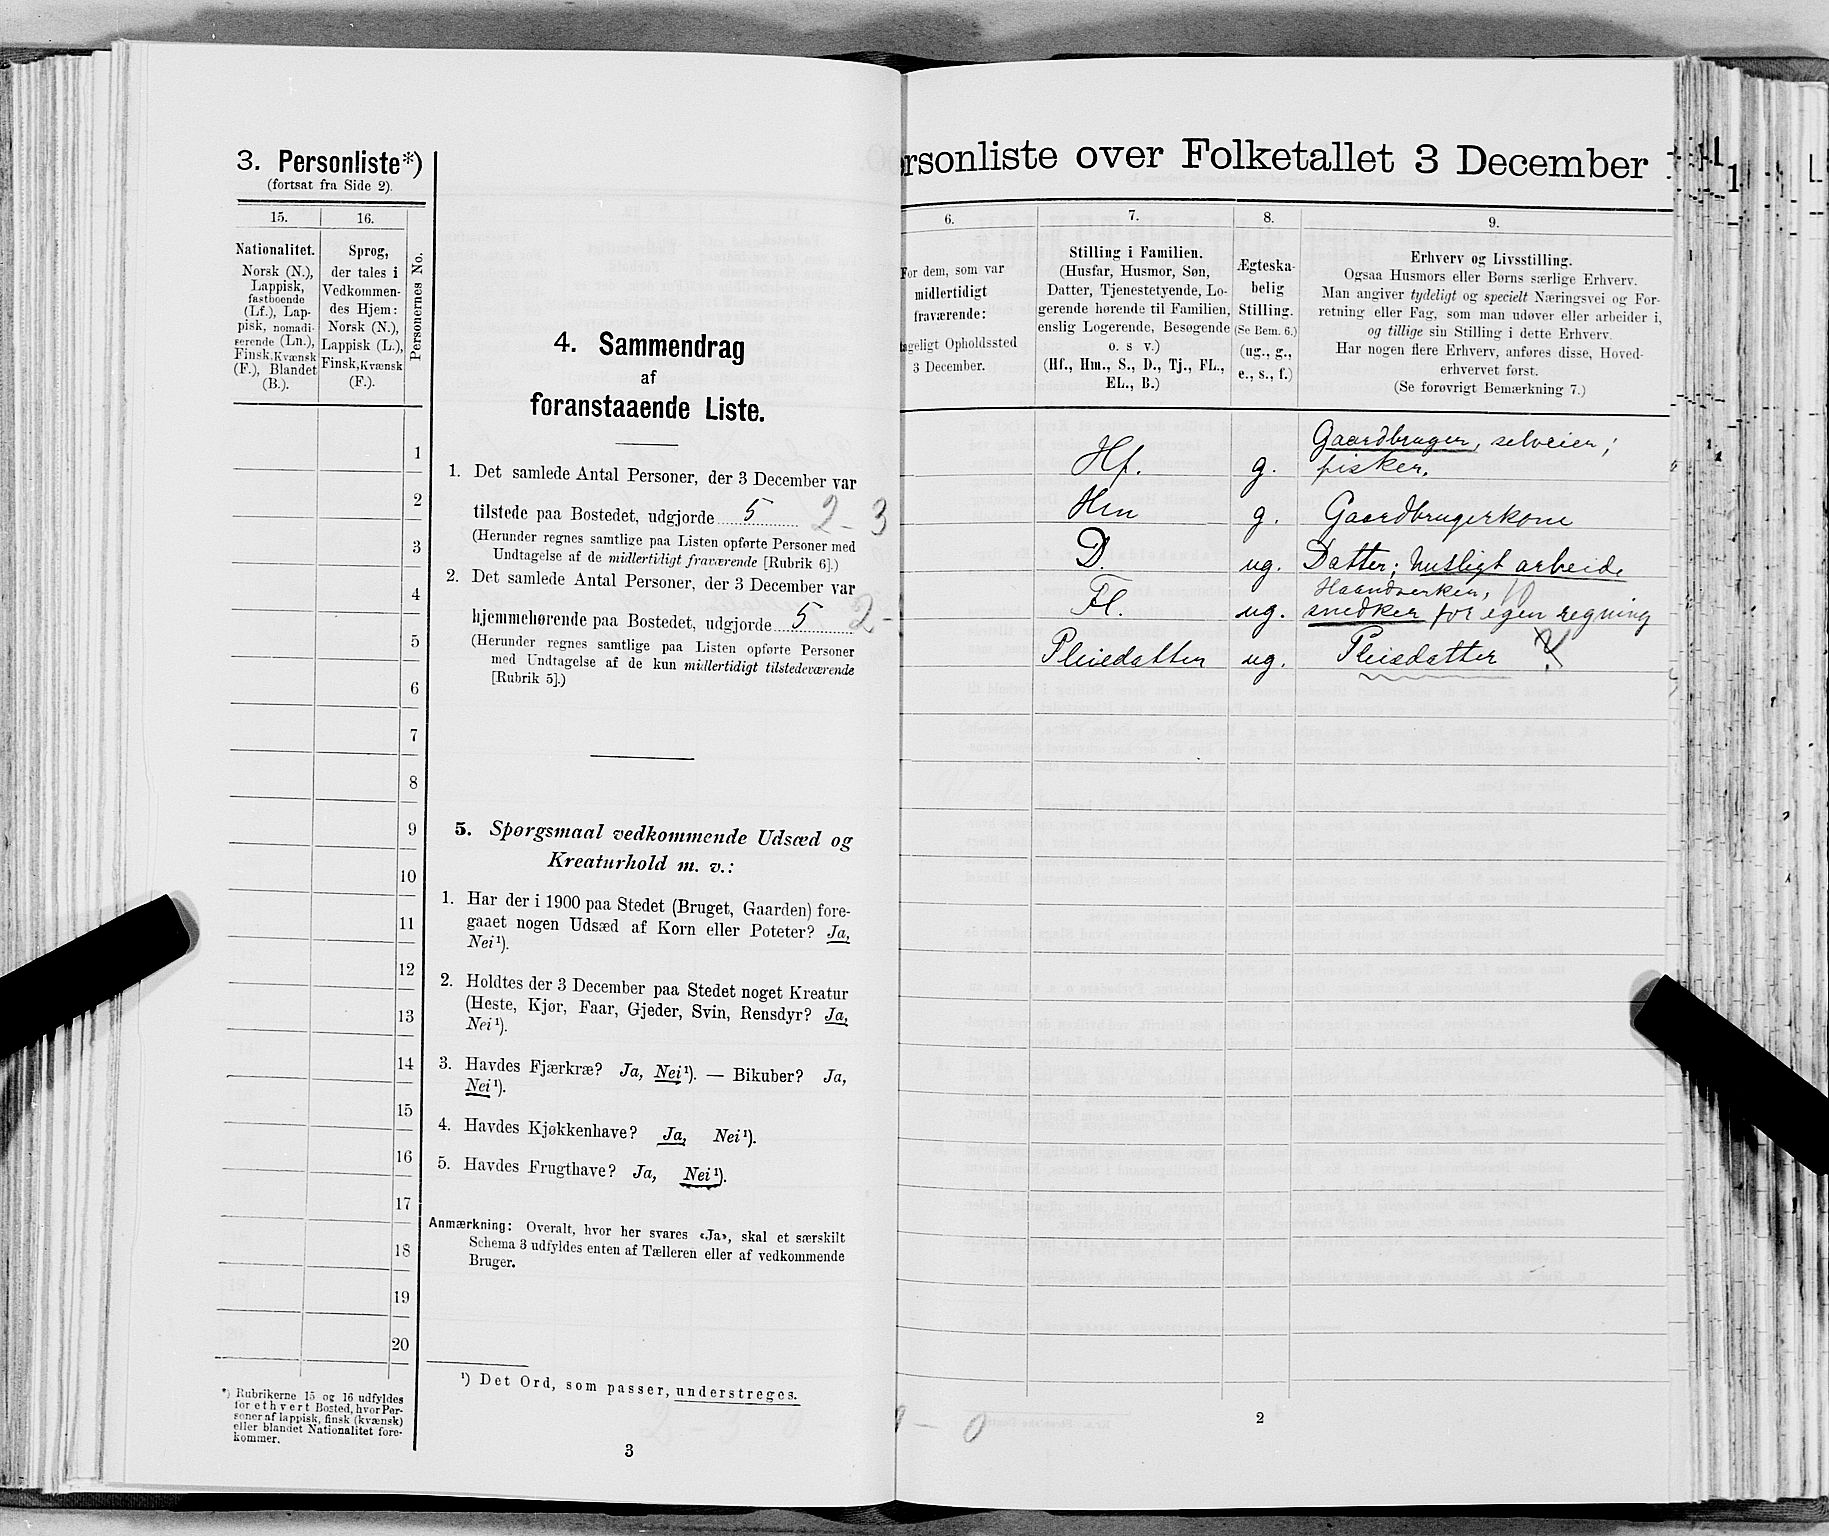 3. Personliste*)
(fortsat fra Side 2).
15.
16.
Nationalitet.
Norsk (N.),
Lappisk,
fastboende
(Lf.), Lap-
pisk, nomadi-
serende (Ln.),
Finsk, Kvænsk
(F.), Blandet
(B.).
Sprog,
der tales i
Vedkommen-
des Hjem:
Norsk (N.),
Lappisk (L.),
Finsk, Kvænsk
(F.).
Personernes No.
1
2
3
4
5
6
7
8
9
10
11
12
13
14
15
16
17
18
19
20
*) Rubrikerne 15 og 16 udfyldes
for ethvert Bosted, hvor Per-
soner af lappisk, finsk (kvænsk)
eller blandet Nationalitet fore-
kommer.
4. Sammendrag
af
foranstaaende Liste.
1. Det samlede Antal Personer, der 3 December var
tilstede paa Bostedet, udgjorde 5 2-3
(Herunder regnes samtlige paa Listen opførte Personer med
Undtagelse af de midlertidigt fraværende [Rubrik 6].)
2. Det samlede Antal Personer, der 3 December var
hjemmehørende paa Bostedet, udgjorde 5 2-
(Herunder regnes samtlige paa Listen opførte Personer
med Undtagelse af de kun midlertidigt tilstedeværende
[Rubrik 5].)
5. Spørgsmaal vedkommende Udsæd og
Kreaturhold m. v.:
1. Har der i 1900 paa Stedet (Bruget, Gaarden) fore-
gaaet nogen Udsæd af Korn eller Poteter? Ja,
Nei¹).
2. Holdtes der 3 December paa Stedet noget Kreatur
(Heste, Kjør, Faar, Gjeder, Svin, Rensdyr? Ja,
Nei¹).
3. Havdes Fjærkræ? Ja, Nei¹). — Bikuber? Ja,
Nei¹).
4. Havdes Kjøkkenhave? Ja, Nei¹).
5. Havdes Frugthave? Ja, Nei¹).
Anmærkning: Overalt, hvor her svares «Ja», skal et særskilt
Schema 3 udfyldes enten af Tælleren eller af vedkommende
Bruger.
¹) Det Ord, som passer, understreges.
3
rsonliste over Folketallet 3 December
6.
7.
8.
9.
For dem, som var
midlertidigt
fraværende:
ageligt Opholdssted
3 December.
Stilling i Familien.
(Husfar, Husmor, Søn,
Datter, Tjenestetyende, Lo-
gerende hørende til Familien,
enslig Logerende, Besøgende
o. s v.)
(Hf., Hm., S., D., Tj., FL.,
EL., B.)
Ægteska-
belig
Stilling.
(Se Bem. 6.)
(ug., g.,
e., s., f.)
Erhverv og Livsstilling.
Ogsaa Husmors eller Børns særlige Erhverv.
Man angiver tydeligt og specielt Næringsvei og For-
retning eller Fag, som man udøver eller arbeider i,
og tillige sin Stilling i dette Erhverv.
Har nogen flere Erhverv, anføres disse, Hoved-
erhvervet først.
(Se forøvrigt Bemærkning 7.)
Gaardbruger, selveier;
Hf. g. fisker.
Hm g. Gaardbrugerkone
D. ug. Datter; husligt arbeide
Haandverker,
Fl. ug. snedker for egen regning
Pleiedatter ug. Pleiedatter ?
- 0
2